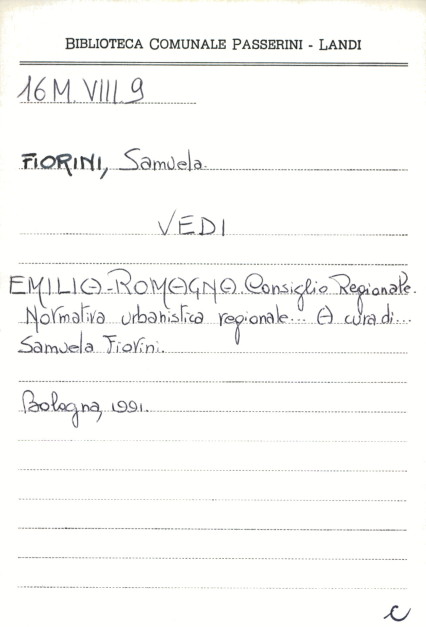 BIBLIOTECA COMUNALE PASSERINI - LANDI
16 M. VIII 9
FIORINI, Samuela.
VEDI
EMILIA-ROMAGNA. Consiglio Regionale.
Normativa urbanistica regionale... A cura di...
Samuela Fiorini.
Bologna, 1991.
C